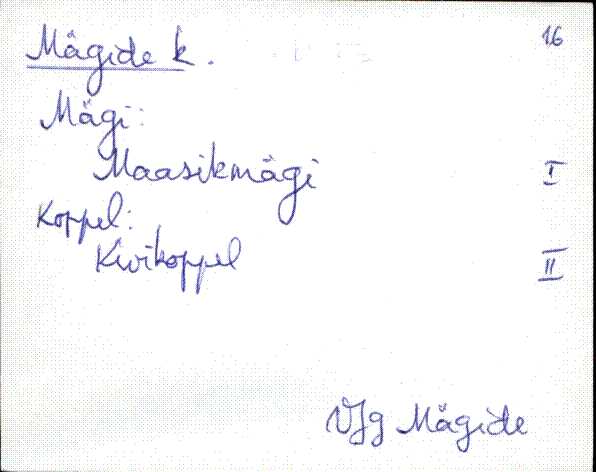 Mägide k. 16
Mägi:
Maasikmägi I
Koppel:
Kivikoppel II
VJg Mägide